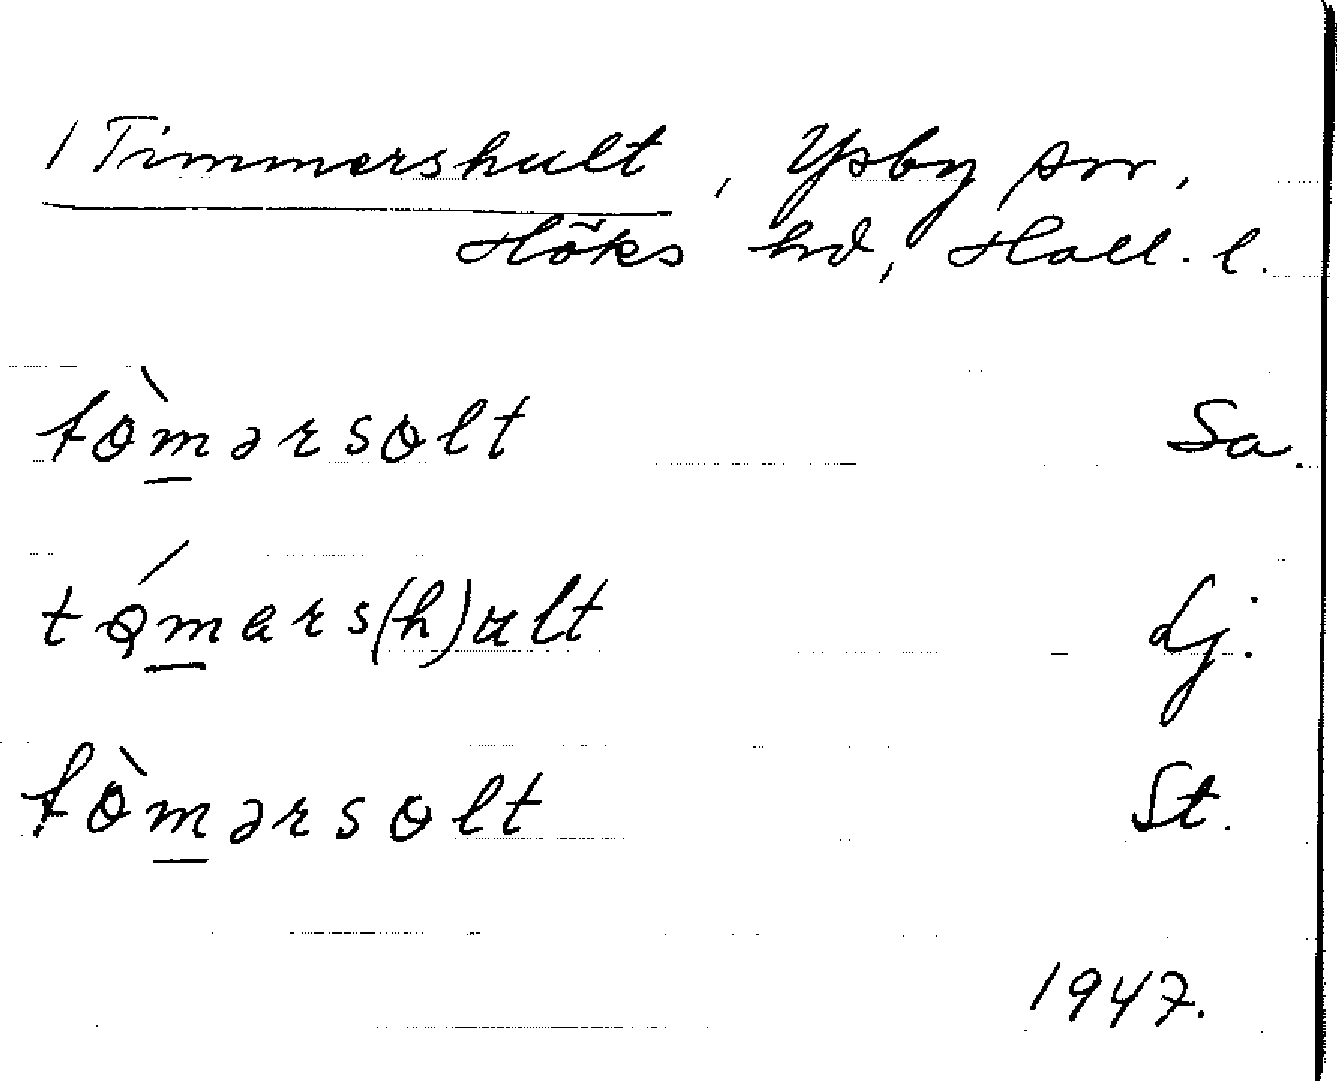 1 Timmershult, Ysby sn,
Höks hd, Hall. l.
tò̱mərsolt Sa.
tǫ́m̱ars(h)ult Lj.
tòm̱ərsolt St.
1947.